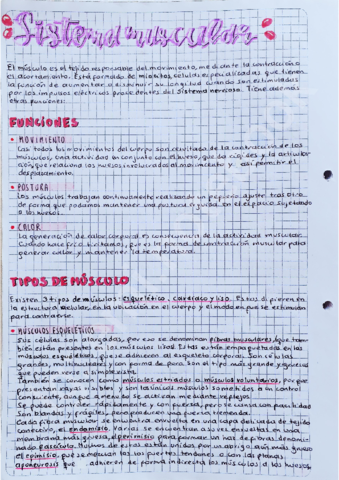 Sistema muscular
El músculo es el tejido responsable del movimiento, mediante la contracción o
el acortamiento. Está formado de miocitos, células especializadas que tienen
la función de aumentar o disminuir su longitud cuando son estimuladas
por los impulsos eléctricos procedentes del sistema nervioso. Tiene además
otras funciones:
FUNCIONES
• MOVIMIENTO
Casi todos los movimientos del cuerpo son resultado de la contracción de los
músculos, una actividad en conjunto con el hueso, que da
que relaciona los huesos involucrados al movimiento y así permitir el
desplazamiento.
• POSTURA
Los músculos trabajan continuamente realizando un pequeño ajuste tras otro
de forma que podamos mantener una postura erguida en el espacio
• CALOR
La generación de calor corporal es consecuencia de la actividad muscular.
Cuando hace frío tiritamos, que es la forma de contracción muscular para
generar calor y mantener la temperatura.
TIPOS DE MÚSCULO
Existen 3 tipos de músculos: esquelético, cardíaco y liso. Estos difieren en
la estructura celular, en la ubicación en el cuerpo y el modo en que se estimulan
para contraerse.
• MÚSCULOS ESQUELÉTICOS
Sus células son alargadas, por eso se denominan fibras musculares, que tam
bién están presentes en los músculos lisos. Estas están empaquetadas en los
músculos esqueléticos, que se adhieren al esqueleto corporal. Son células
grandes, multinucleares y con forma de puro. Son el tipo más grande y
que pueden verse a simple vista.
También se conocen como músculos estriados o músculos voluntarios, porque
presentan rayas visibles y son los únicos músculos sometidos a un control
consciente, aunque a menudo se activan mediante reflejos.
Se puede contraer rápidamente y con fuerza, pero se cansa con facilidad.
Son blandos y frágiles, pero producen una fuerza tremenda.
Cada fibra muscular se encuentra envuelta en una capa delgada de tejido
conectivo, el endomisio. Varias se encuentran a su vez envueltas en una
membrana más gruesa, el perimisio para formar un haz de fibras denomi-
nado fascículo. Muchos de estos están unidos por un abrigo aún más grueso
el epimisio, que se mezclan con los fuertes tendones o con las planas
aponeurosis que adhieren de forma indirecta los músculos a los huesos,